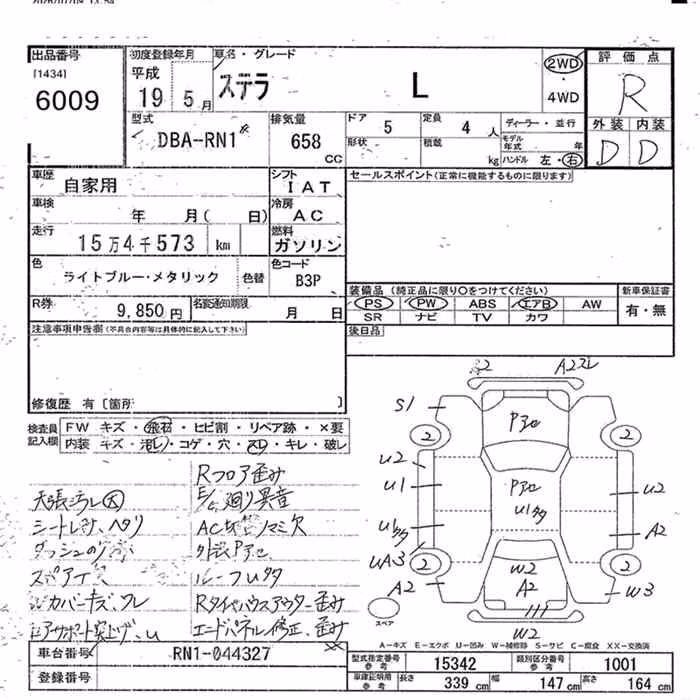 出品番号
[1434]
6009
初度登録年月
平成
19 5 月
車名・グレード
ステラ L
2WD
・
4WD
評価点
R
外装 内装
D D
型式
DBA-RN1
排気量
658
CC
ドア
5
定員
4 人
形状
積載
kg
ディーラー・並行
モデル年式 年
ハンドル 左・右
車歴
自家用
シフト
IAT
セールスポイント(正常に機能するものに限ります)
車検
年 月( 日)
冷房
AC
走行
15万4千573 km
燃料
ガソリン
色
ライトブルー・メタリック
色替
色コード
B3P
装備品 (純正品に限り〇をつけてください)
PS PW ABS エアB AW
SR ナビ TV カワ
新車保証書
有・無
R券
9,850円
名変通知期限
月 日
後日品
注意事項申告欄(不具合内容等は具体的に記入して下さい)
修復歴 有 [箇所 ]
検査員記入欄
FW キズ・飛石・ヒビ割・リペア跡・×要
内装 キズ・汚レ・コゲ・穴・スレ・キレ・破レ
Rフロア歪み
E/G廻り異音
天張汚レ大
シートレカ、ヘタリ
外装Pアセ
ルーフUタ
Rタイヤハウスアウター歪み
エンドパネル修正、歪み
A2スレ
S1
Pアセ
2 2
U2
U1
Pアセ
U1タタ
U2
A2
UA3
A2
2 2
W2
A2
W3
W2
スペア
A-キズ E-エクボ U-凹み W-補修跡 S-サビ C-腐食 XX-交換済
車台番号
RN1-044327
登録番号
型式指定番号 参考
15342
類別区分番号 参考
1001
車庫証明用 参考
長さ 339 cm
幅 147 cm
高さ 164 cm